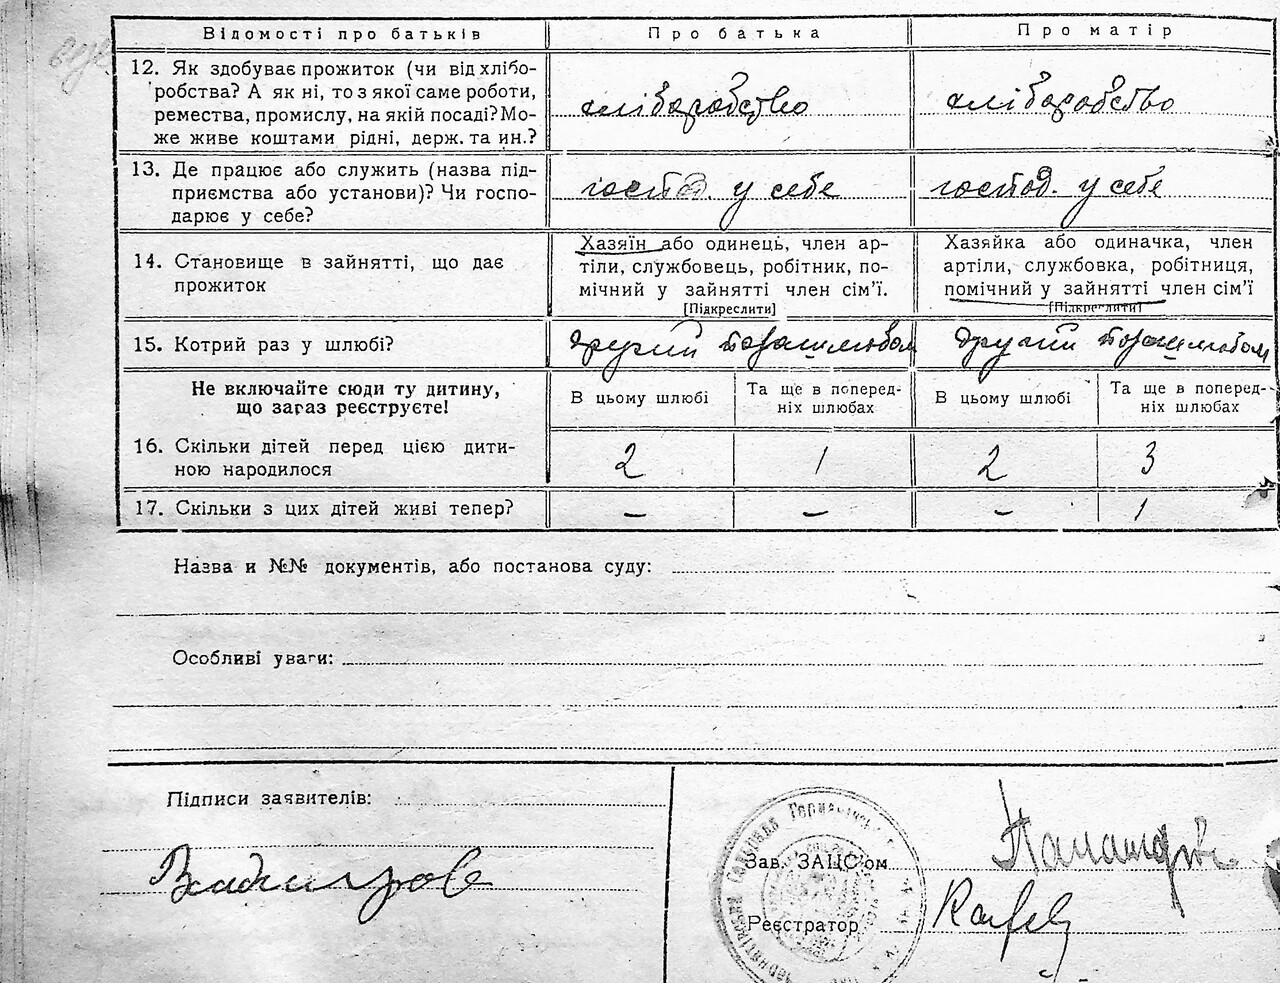 Відомості про батьків Про батька Про матір
12. Як здобуває прожиток (чи від хлібо-
робства? А як ні, то з якої саме роботи,
ремества, промислу, на якій посаді? Мо-
же живе коштами рідні, держ. та ин.?
хліборобство хліборобство
13. Де працює або служить (назва під-
приємства або установи)? Чи госпо-
дарює у себе?
господ. у себе господ. у себе
14. Становище в зайнятті, що дає
прожиток
Хазяїн або одинець, член ар-
тіли, службовець, робітник, по-
мічний у зайнятті член сім'ї.
[Підкреслити]
Хазяйка або одиначка, член
артіли, службовка, робітниця,
помічний у зайнятті член сім'ї
[Підкреслити]
15. Котрий раз у шлюбі? другий другий
Не включайте сюди ту дитину,
що загаз реєструєте!
В цьому шлюбі
Та ще в поперед-
ніх шлюбах
В цьому шлюбі
Та ще в поперед-
ніх шлюбах
16. Скільки дітей перед цією дити-
ною народилося
2 1 2 3
17. Скільки з цих дітей живі тепер? – – – 1
Назва и №№ документів, або постанова суду:
Особливі уваги:
Підписи заявителів:
Зав. ЗАЦС'ом
Реєстратор